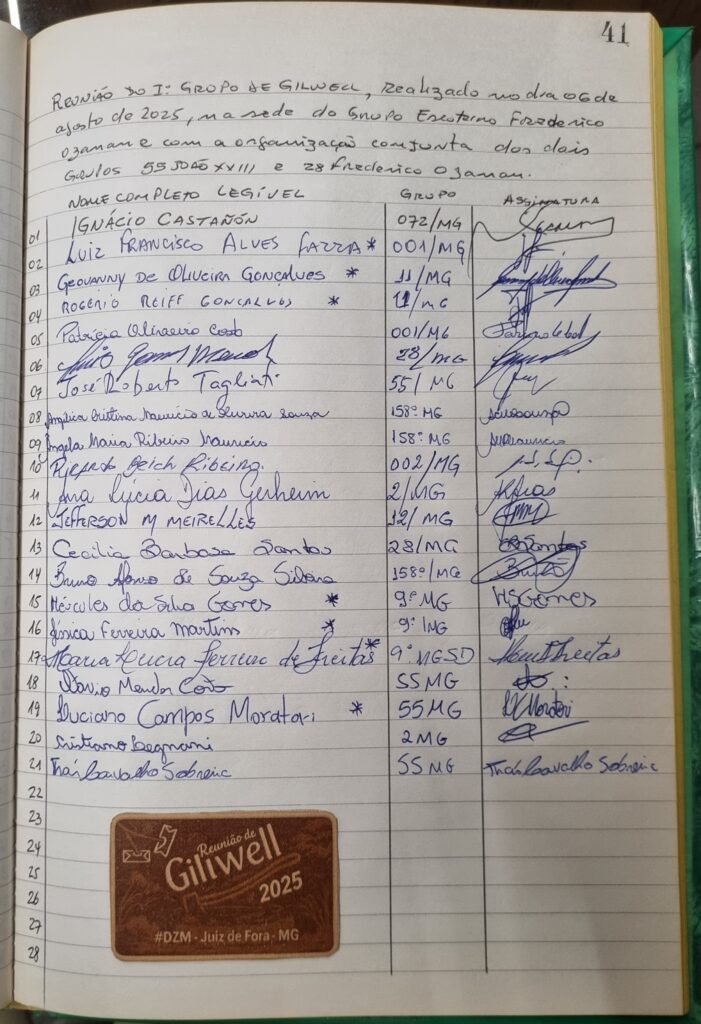 41
REUNIÃO DO Iº GRUPO DE GILWELL, realizado no dia 06 de
agosto de 2025, na sede do Grupo Escoteiro Frederico
Ozanan e com a organização conjunta dos dois
Grupos 55 JOÃO XXIII e 28 Frederico Ozanan.
NOME COMPLETO LEGÍVEL GRUPO ASSINATURA
01 IGNÁCIO CASTAÑÓN 072/MG
02 LUIZ FRANCISCO ALVES * 001/MG
03 GEOVANNY DE OLIVEIRA GONÇALVES * 11/MG
04 ROGÉRIO REIFF GONCALVES * 11/MG
05 Patrícia 001/MG
06 28/MG
07 José Roberto Tagliati 55/MG
08 Angélica Cristina Mauricio de Oliveira Souza 158º MG
09 Angela Maria Ribeiro Mauricio 158º MG
10 Ricardo Ribeiro 002/MG
11 Ana Lúcia Dias Gerheim 2/MG
12 JEFFERSON M MEIRELLES 12/MG
13 Cecilia Barbosa Santos 28/MG
14 Bruno Afonso de Souza 158º/MG
15 Hércules da Silva Gomes * 9º MG HSGomes
16 Jéssica Ferreira Martins * 9º MG
17 Maria Lucia Ferreira de Freitas * 9º MG
18 Mendes Couto 55 MG
19 Luciano Campos Moratori * 55 MG Moratori
20 Cristiano Begnami 2 MG
21 Thaís Carvalho Sobreira 55 MG Thaís Carvalho Sobreira
22
23
24
25
26
27
28
Reunião de
Giliwell
2025
#DZM - Juiz de Fora - MG